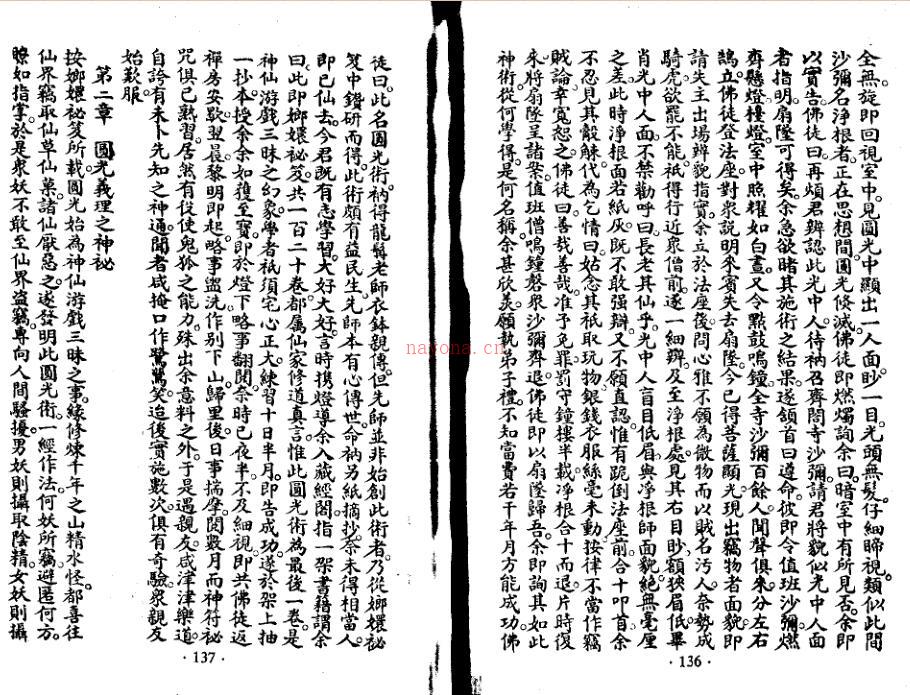 全無旋即回視室中見圓光中顯出一人面眇一目光頭無髮仔細睇視類似此間
沙彌名淨根者正在思想間圓光倏滅佛徒即燃燭詢余曰暗室中有所見否余即
以實告佛徒曰再煩君辨認此光中人待衲召齊閤寺沙彌請君將貌似光中人面
者指明扇墜可得矣余急欲睹其施術之結果遂頷首曰遵命彼即令值班沙彌燃
齊懸燈檯燈室中照耀如白晝又令點鼓鳴鐘全寺沙彌百餘人聞聲俱來分左右
鵠立佛徒登法座對衆說明來賓失去扇墜今已得菩薩顯光現出竊物者面貌即
請失主出場辨貌指實余立於法座後問心雅不願為微物而以賊名污人奈勢成
騎虎欲罷不能祇得行近衆僧前逐一細辨及至淨根處見其右目眇額狹眉低畢
肖光中人面不禁勸呼曰長老其仙乎光中人盲目低眉與凈根師面貌絕無毫厘
之差此時淨根面若紙灰既不敢强辯又不願直認惟有跪倒法座前合十叩首余
不忍見其觳觫代為乞情曰姑念其祇取玩物銀錢衣服絲毫未動按律不當作竊
賊論幸寬恕之佛徒曰善哉善哉准予免罪罰守鐘樓半載凈根合十而退片時復
來將扇墜呈諸案值班僧鳴鐘磬衆沙彌齊退佛徒即以扇墜歸吾余即詢其如此
神術從何學得是何名稱余甚欣羨願執弟子禮不知當費若干年月方能成功佛
·136·
徒曰此名圓光術衲得龍髯老師衣鉢親傳但先師並非始創此術者乃從嫏嬛秘
笈中鑽研而得此術頗有益民生先師本有心傳世命衲另紙摘抄奈未得相當人
即已仙去今君既有志學習大好大好言時携燈導余入藏經閣指一架書籍謂余
曰此即嫏嬛秘笈共一百二十卷都属仙家修道真言惟此圓光術為最後一卷是
神仙游戲三昧之幻象學者祇須宅心正大練習十日半月即告成功遂於架上抽
一抄本授余余如獲至寶即於燈下略事翻閱余時已夜半不及細視即共佛徒返
禪房安歇翌晨黎明即起略事盥洗作别下山歸里後日事揣摩閱數月而神符秘
咒俱已熟習居然有役使鬼狐之能力殊出余意料之外于是遇親友咸津津樂道
自誇有未卜先知之神通聞者咸掩口作鷺鷥笑迨後實施數次俱有奇驗衆親友
始歎服
第二章 圓光義理之神秘
按嫏嬛秘笈所載圓光始為神仙游戲三昧之事緣修煉千年之山精水怪都喜往
仙界竊取仙草仙菓諸仙厭惡之遂發明此圓光術一經作法何妖所竊避匿何方
瞭如指掌於是衆妖不敢至仙界盜竊專向人間騷擾男妖則攝取陰精女妖則攝
·137·
nayona.cn